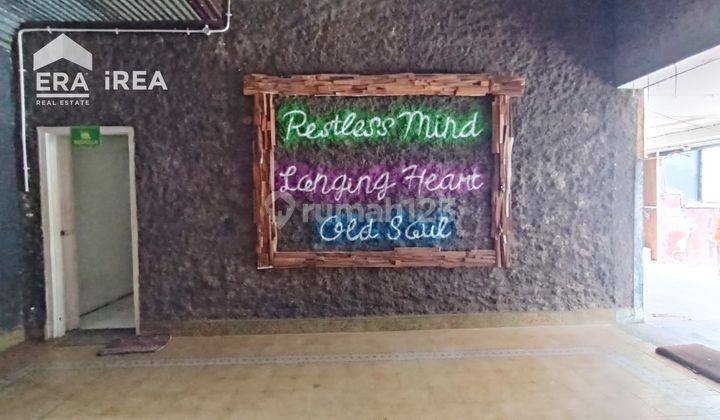 ERA iREA
REAL ESTATE
Restless Mind
Longing Heart
rumah123
Old Soul